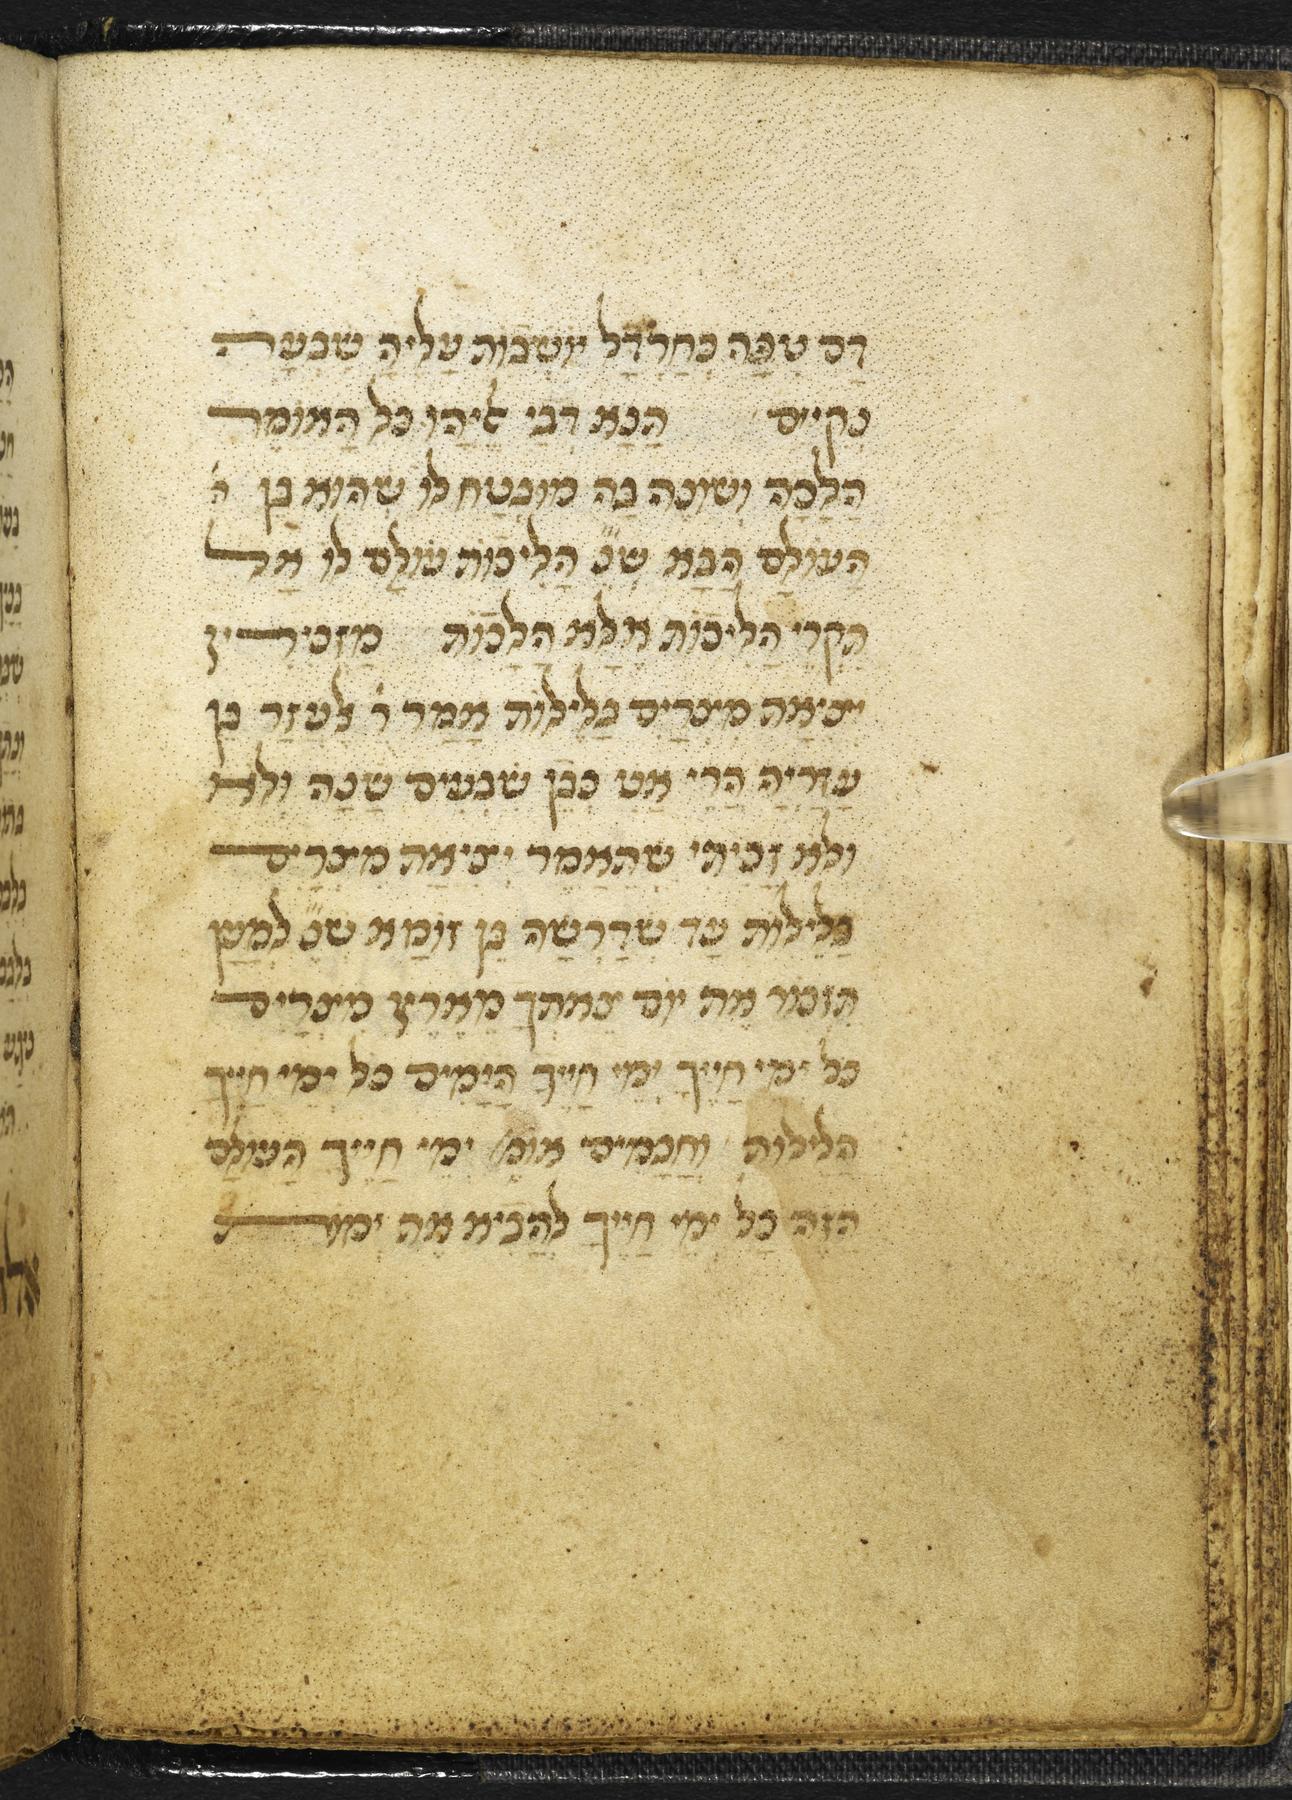 דַם טִפָּה כְּחַרְדָּל יוֹשְׁבוֹת עָלֶיהָ שִׁבְעָה
נְקִיִּים הַנָּא דְבֵי אֵלִיָּהוּ כָּל הָאוֹמֵר
הֲלָכָה וְשׁוֹנֶה בָּהּ מוּבְטָח לוֹ שֶׁהוּא בֶּן ה
הָעוֹלָם הַבָּא שֶׁנּ׳ הֲלִיכוֹת עוֹלָם לוֹ אַל
תִּקְרֵי הֲלִיכוֹת אֶלָּא הֲלָכוֹת מַזְכִּירִין
יְצִיאַת מִצְרַיִם בַּלֵּילוֹת אָמַר ר׳ אֶלְעָזָר בֶּן
עֲזַרְיָה הֲרֵי אֲנִי כְּבֶן שִׁבְעִים שָׁנָה וְלֹא
וְלֹא זָכִיתִי שֶׁתֵּאָמֵר יְצִיאַת מִצְרַיִם
בַּלֵּילוֹת עַד שֶׁדְּרָשָׁהּ בֶּן זוֹמָא שֶׁנּ׳ לְמַעַן
תִּזְכּוֹר אֶת יוֹם צֵאתְךָ מֵאֶרֶץ מִצְרַיִם
כֹּל יְמֵי חַיֶּיךָ יְמֵי חַיֶּיךָ הַיָּמִים כָּל יְמֵי חַיֶּיךָ
הַלֵּילוֹת וַחֲכָמִים אוֹמ׳ יְמֵי חַיֶּיךָ הָעוֹלָם
הַזֶּה כָּל יְמֵי חַיֶּיךָ לְהָבִיא אֶת יְמוֹת